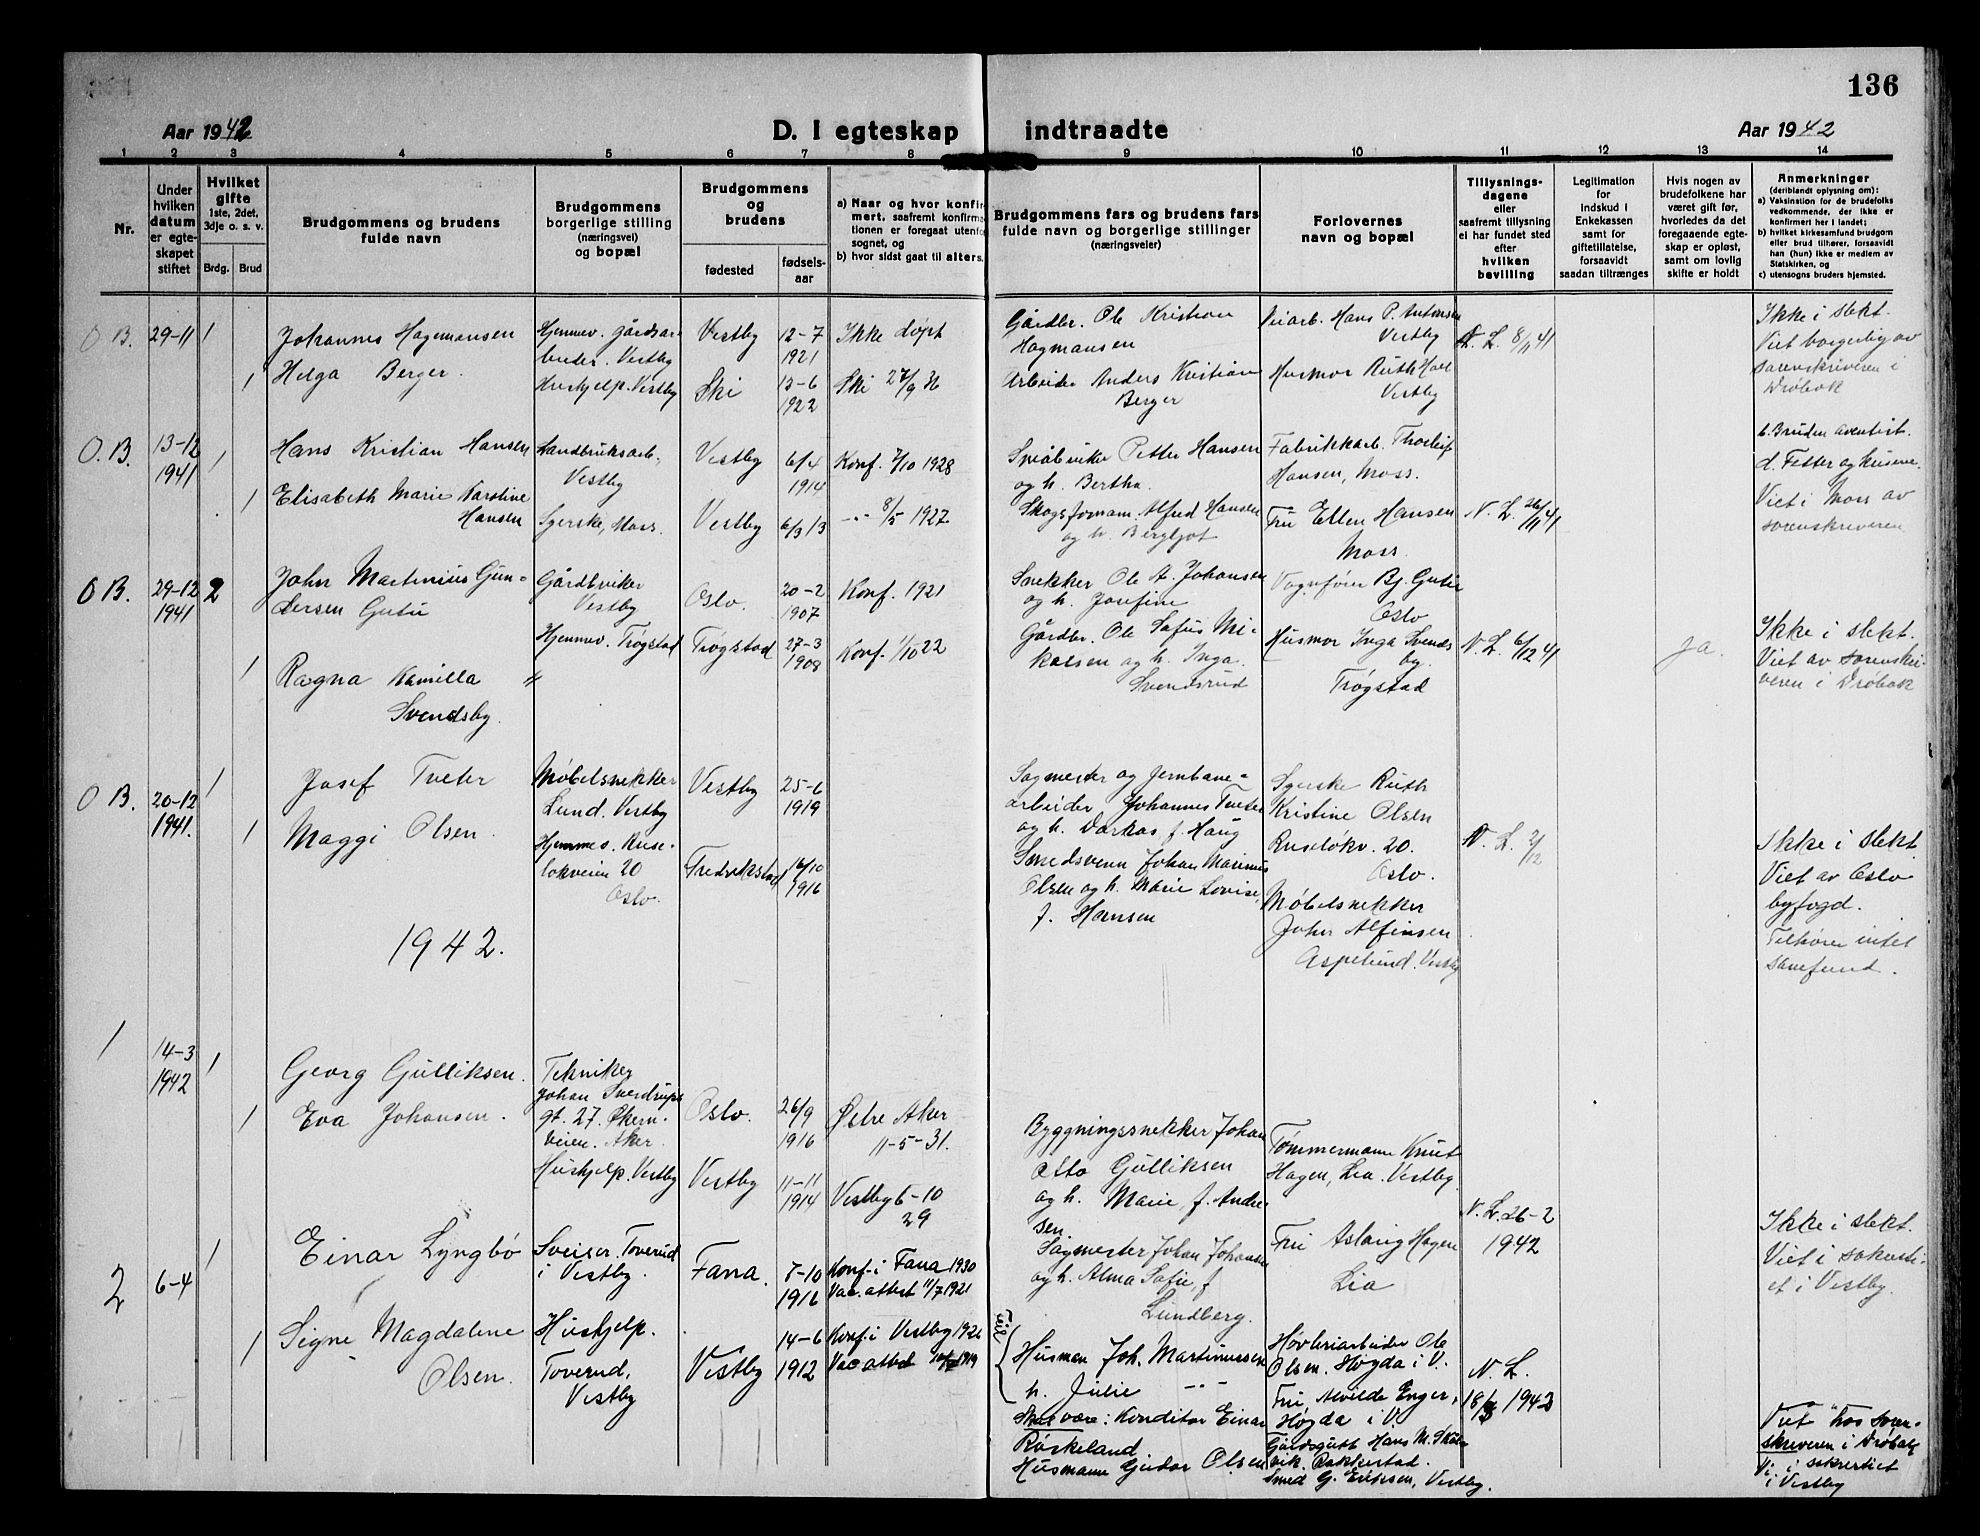 136
Aar 1942
D. I egteskap indtraadte
Aar 1942
1 2 3 4 5 6 7 8 9 10 11 12 13 14
Nr.
Under
hvilken
datum
er egte-
skapet
stiftet
Hvilket
gifte
1ste, 2det,
3dje o. s. v.
Brdg. Brud
Brudgommens og brudens
fulde navn
Brudgommens
borgerlige stilling
(næringsvei)
og bopæl
Brudgommens
og
brudens
fødested
fødsels-
aar
a) Naar og hvor konfir-
mert, saafremt konfirma-
tionen er foregaat utenfor
sognet, og
b) hvor sidst gaat til alters.
Brudgommens fars og brudens fars
fulde navn og borgerlige stillinger
(næringsveier)
Forlovernes
navn og bopæl
Tillysnings-
dagene
eller
saafremt tillysning
ei har fundet sted
efter
hvilken
bevilling
Legitimation
for
indskud i
Enkekassen
samt for
giftetillatelse,
forsaavidt
saadan tiltrænges
Hvis nogen av
brudefolkene har
været gift før,
hvorledes da det
foregaaende egte-
skap er opløst,
samt om lovlig
skifte er holdt
Anmerkninger
(deriblandt oplysning om):
a) Vaksination for de brudefolks
vedkommende, der ikke er
konfirmert her i landet;
b) hvilket kirkesamfund brudgom
eller brud tilhører, forsaavidt
han (hun) ikke er medlem av
Statskirken, og
c) utensogns bruders hjemsted.
O B. 29-11 1
Johannes Hagemansen
Hjemmev. gårdsar-
beider. Vestby
Vestby
12-7
1921
Ikke døpt
Gårdbr. Ole Kristian
Hagmansen
Veiarb. Hans P. Antonsen
Vestby
N. L. 8/11 41
Ikke i slekt.
Viet borgerlig av
sorenskriveren i
Drøbak
1
Helga Berger.
Hushjelp. Vestby
Ski
13-6
1922
Ski 27/9 36
Arbeider Anders Kristian
Berger
Husmor Ruth Hoel
Vestby
O. B. 13-12
1941 1
Hans Kristian Hansen
Landbruksarb.,
Vestby
Vestby
6/4
1914
Konf. 7/10 1928
Småbruker Petter Hansen
og h. Bertha.
Fabrikkarb. Thorleif
Hansen, Moss.
b. Bruden adventist.
d. Fetter og kusine.
Viet i Moss av
sorenskriveren
1
Elisabeth Marie Karoline
Hansen
Syerske, Moss.
Vestby
6/3 13
-"- 8/5 1927
Skogsformann Alfred Hansen
og h. Bergljot
Fru Ellen Hansen
Moss.
N. L. 26/11 41
O B. 29-12
1941 2
John Martinius Gun-
dersen Gutu
Gårdbruker
Vestby
Oslo.
20-2
1907
Konf. 1921
Snekker Ole A. Johansen
og h. Josefine
Vognfører Bj. Gutu
Oslo
1
Ragna Kamilla
Svendsby.
Hjemmev. Trøgstad
Trøgstad
27-3
1908
Konf. 1/10 22
Gårdbr. Ole Sofus Mi-
kalsen og h. Inga.
Svendsrud
Husmor Inga Svends
by.
Trøgstad
N. L. 6/12 41
Ja.
Ikke i slekt.
Viet av sorenskri-
veren i Drøbak
O B. 20-12
1941. 1
Josef Tveter
Møbelsnekker
Lund. Vestby
Vestby
25-6
1919
Sagmester og jernbane-
arbeider Johannes Tveter
og h. Dorkas f. Haug
Syerske Ruth
Kristine Olsen
Ruseløkv. 20.
Oslo.
N. L. 2/12
1
Maggi Olsen.
Hjemmev. Ruse-
løkveien 20
Oslo.
Fredrikstad
16/10
1916
Smedsvenn Johan Marinus
Olsen og h. Marie Lovise,
f. Hansen
Møbelsnekker
John Alfinsen
Aspelund. Vestby
Ikke i slekt
Viet av Oslo
byfogd.
Tilhører intet
samfund.
1942.
1 14-3
1942 1
Georg Gulliksen.
Tekniker
Johan Sverdrups
gt. 27. Økern-
veien. Aker.
Oslo.
26/9
1916
Østre Aker
11-5-31.
Byggningssnekker Johan
Otto Gulliksen
og h. Marie f. Andre-
sen.
Tømmermann Knut
Hagen, Lia. Vestby.
1
Eva Johansen.
Hushjelp. Vestby
Vestby
11-11
1914
Vestby 6-10
29
Sagmester Johan Johansen
og h. Alma Sofie, f
Lundberg.
Fru Aslaug Hagen
Lia
N. L. 26-2
1942
Ikke i slekt.
Viet i sakristi-
et i Vestby.
2 6-4 1
Einar Lyngbø
Sveiser. Toverud
i Vestby.
Fana.
7-10
1916
Konf. i Fana 1930
Vac. attest 11/7 1921
Feil
Husman Joh. Martinussen
h. Julie -"-
Høvleriarbeider Ole
Olsen. Høgda i V.
Fru Alvilde Enger,
Høgda i V.
N. L.
18/3 1942
1
Signe Magdalene
Olsen.
Hushjelp.
Toverud,
Vestby
Vestby
14-6
1912
Konf. i Vestby 1926
Vac attest 1919
Skal være: Konditor Einar
Røskeland
Husmann Gudor Olsen
Gårdsgutt Hans M.
Rakkestad.
Smed G. Eriksen, Vestby.
Viet hos soren-
skriveren i Drøbak
Vi. i sakristiet
i Vestby